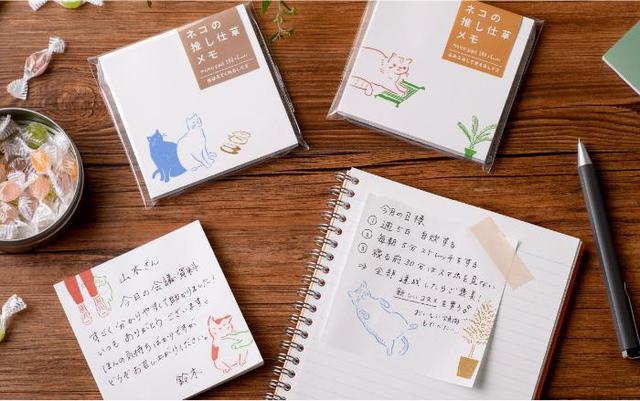 ネコの
推し仕草
メモ
memo pad
ネコの
推し仕草
メモ
memo pad
山本さん
今日の会議資料
すごく分かりやすくて助かりました!
いつもありがとうございます。
ほんの気持ちばかりですが
どうぞお召し上がりください。
鈴木
今月の目標
① 週5日 自炊する
② 毎朝5分ストレッチをする
③ 寝る前30分はスマホを見ない
→ 全部達成したらご褒美!
新しいコスメを買う
おいしい焼肉
もたべたい…